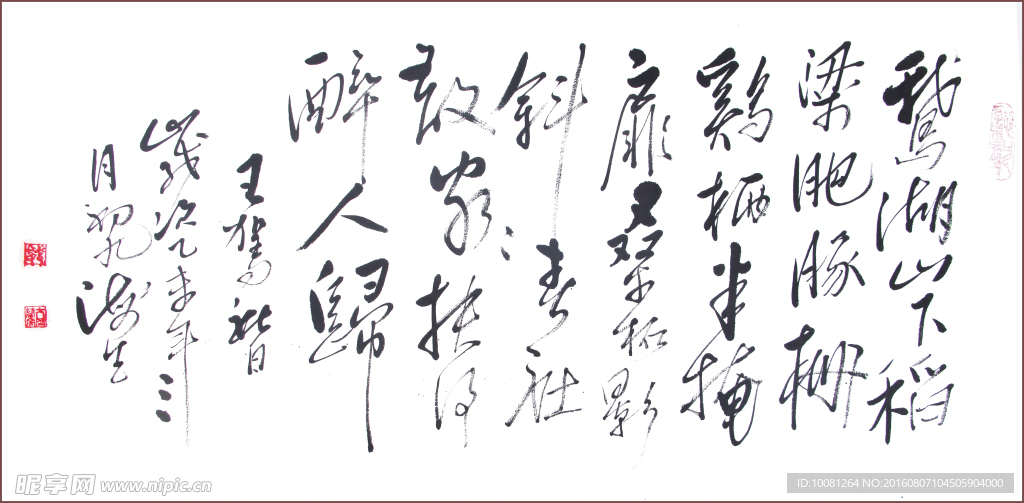 鵞湖山下稻
梁肥豚栅
鷄栖半掩
扉桑柘影
斜春社
散家〻扶得
醉人歸
王駕社日
歲次乙未年三
月初九
昵享网 www.nipic.cn
ID:10081264 NO:20160807104505904000